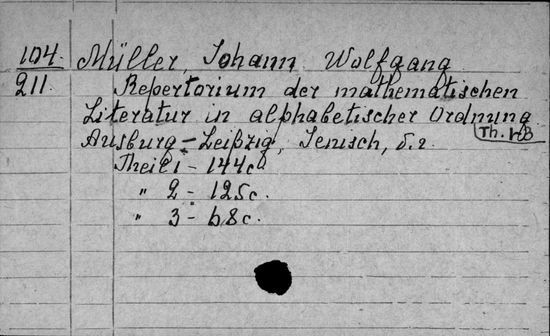 104.
211.
Müller, Johann Wolfgang
Repertorium der mathematischen
Literatur in alphabetischer Ordnung.
Ausburg - Leipzig, Jenisch, б.г.
Theil 1 - 144 с.
" 2 - 125 с.
" 3 - 68 с.